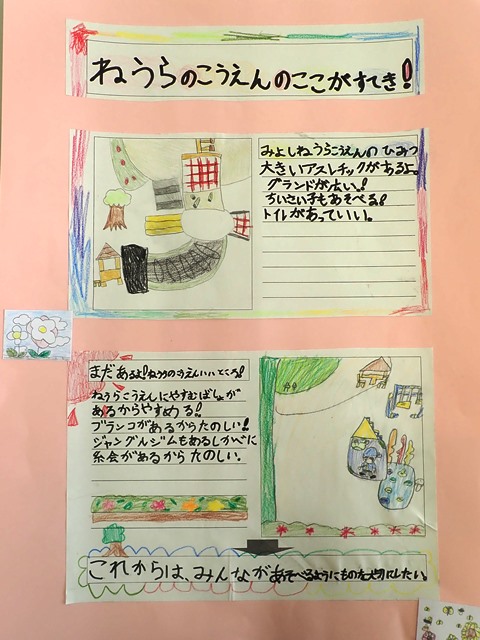 ねうらのこうえんのここがすてき!
みよしねうらこうえんのひみつ
大きいアスレチックがあるよ。
グランドが広い!
ちいさい子もあそべる!
トイレがあっていい。
まだあるよ!ねうらのこうえんいいところ!
ねうらこうえんにやすむばしょが
あるからやすめる!
ブランコがあるからたのしい!
ジャングルジムもあるしかべに
糸会があるからたのしい。
これからは、みんながあそべるようにものを大切にしたい。